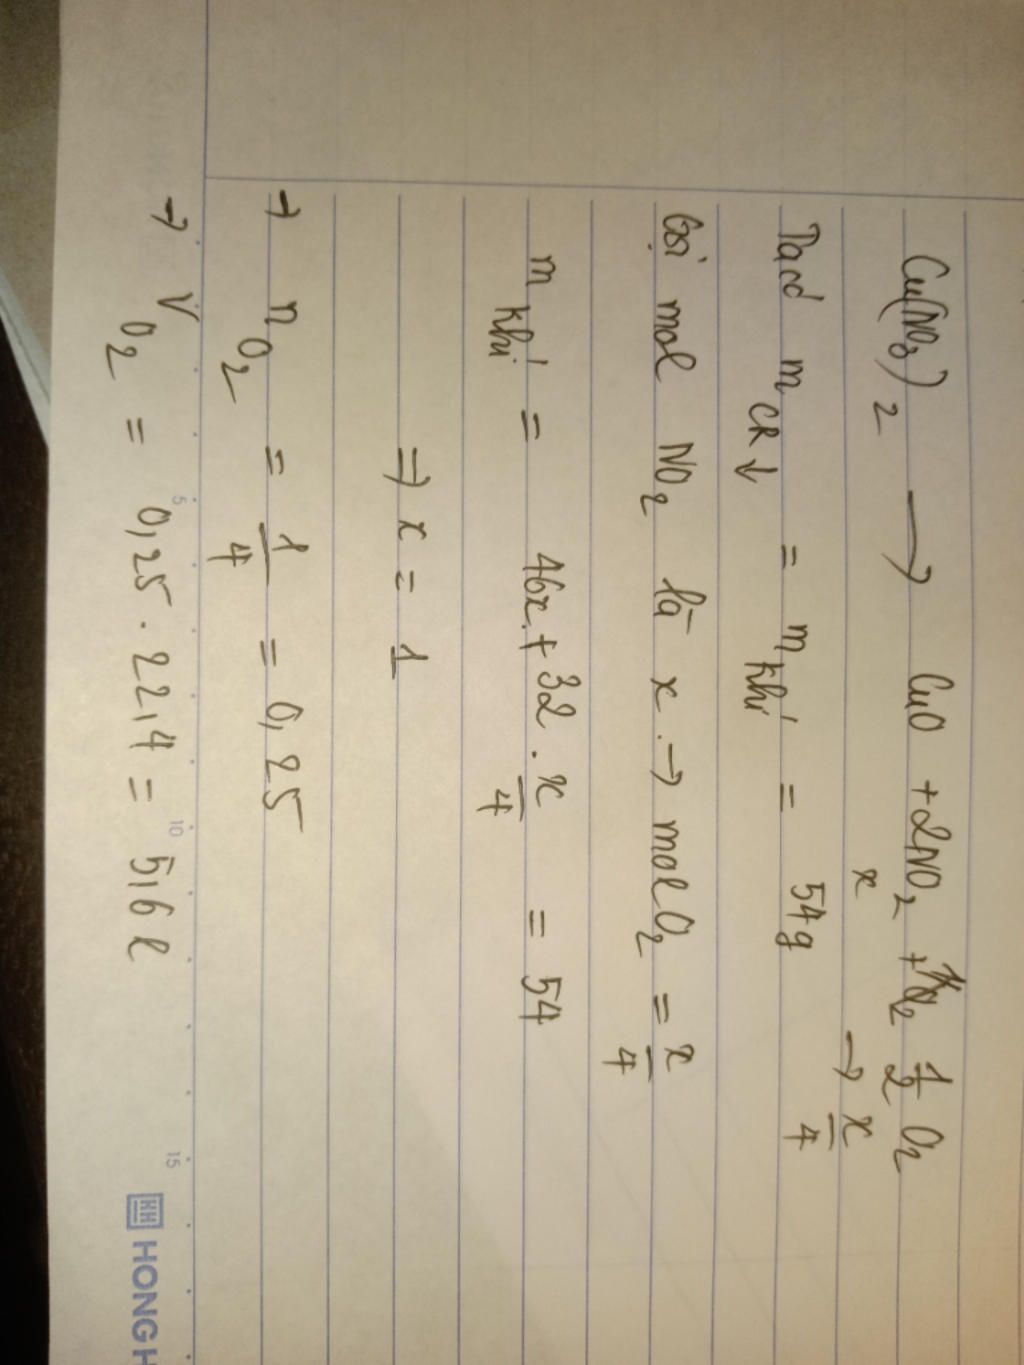 Cu(NO₃)₂ → CuO + 2NO₂ + ½ O₂
x → x/4
Tacó m CR↓ = m khí = 54g
Gọi mol NO₂ là x → mol O₂ = x/4
m khí = 46x + 32 . x/4 = 54
⇒ x = 1
→ n O₂ = 1/4 = 0,25
→ V O₂ = 0,25 . 22,4 = 5,6 l
5 10 15
KH HONG H